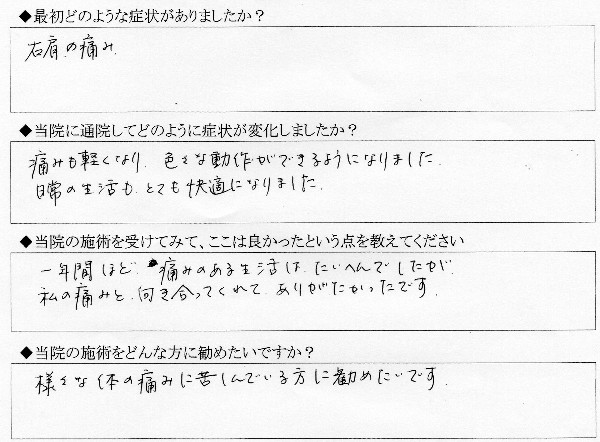 ◆最初どのような症状がありましたか？
右肩の痛み
◆当院に通院してどのように症状が変化しましたか？
痛みも軽くなり、色々な動作ができるようになりました。
日常の生活も、とても快適になりました。
◆当院の施術を受けてみて、ここは良かったという点を教えてください
一年間ほど、痛みのある生活は、たいへんでしたが、
私の痛みと、向き合ってくれて、ありがたかったです。
◆当院の施術をどんな方に勧めたいですか？
様々な体の痛みに苦しんでいる方に勧めたいです。